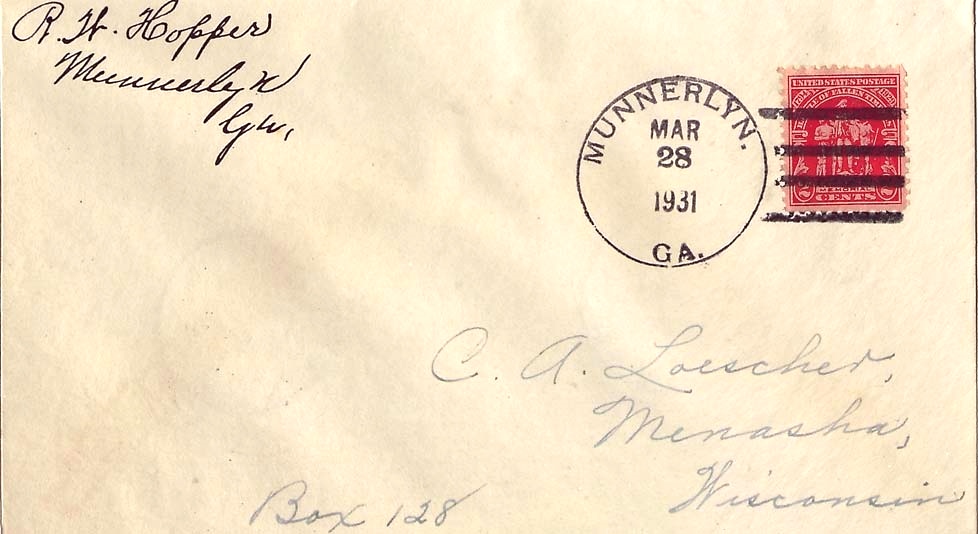 R. W. Hopper
Munnerlyn
Ga,
MUNNERLYN.
MAR
28
1931
GA.
UNITED STATES POSTAGE
OF FALLEN
2 2
CENTS
C. A. Loescher,
Menasha,
Wisconsin
Box 128